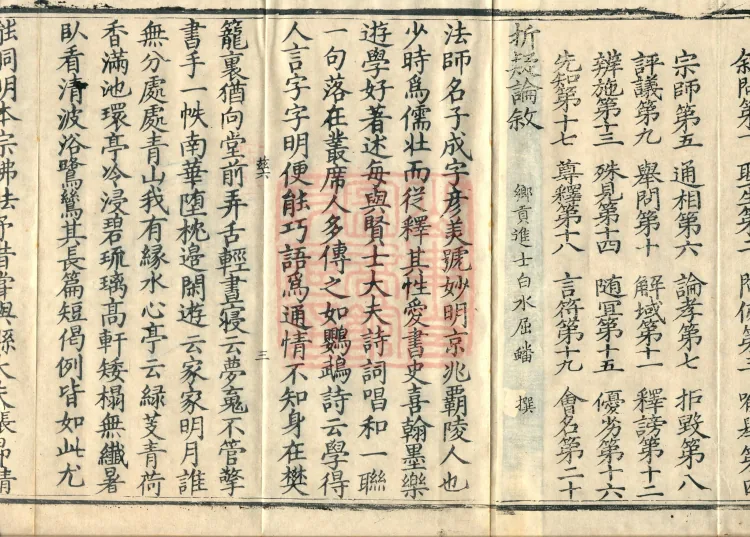 宗師第五 通相第六 論孝第七 拒毀第八
評議第九 舉問第十 解域第十一 釋謗第十二
辨施第十三 殊見第十四 随宜第十五 優劣第十六
先知第十七 尊釋第十八 言符第十九 會名第二十
折疑論敘 鄉貢進士白水屈蟠 撰
法師名子成字彦美號妙明京兆覇陵人也
少時爲儒壮而従釋其性愛書史喜翰墨樂
遊學好著述每與賢士大夫詩詞唱和一聯
一句落在叢席人多傳之如鸚鵡詩云學得
人言字字明便能巧語爲通情不知身在樊
籠裏猶向堂前弄舌輕晝寝云夢䰟不管擎
書手一帙南華堕枕邊閑遊云家家明月誰
無分處處青山我有縁水心亭云緑芰青荷
香滿池環亭冷浸碧琉璃髙軒矮榻無纖暑
卧看清波浴鷺鷥其長篇短偈例皆如此尤
三